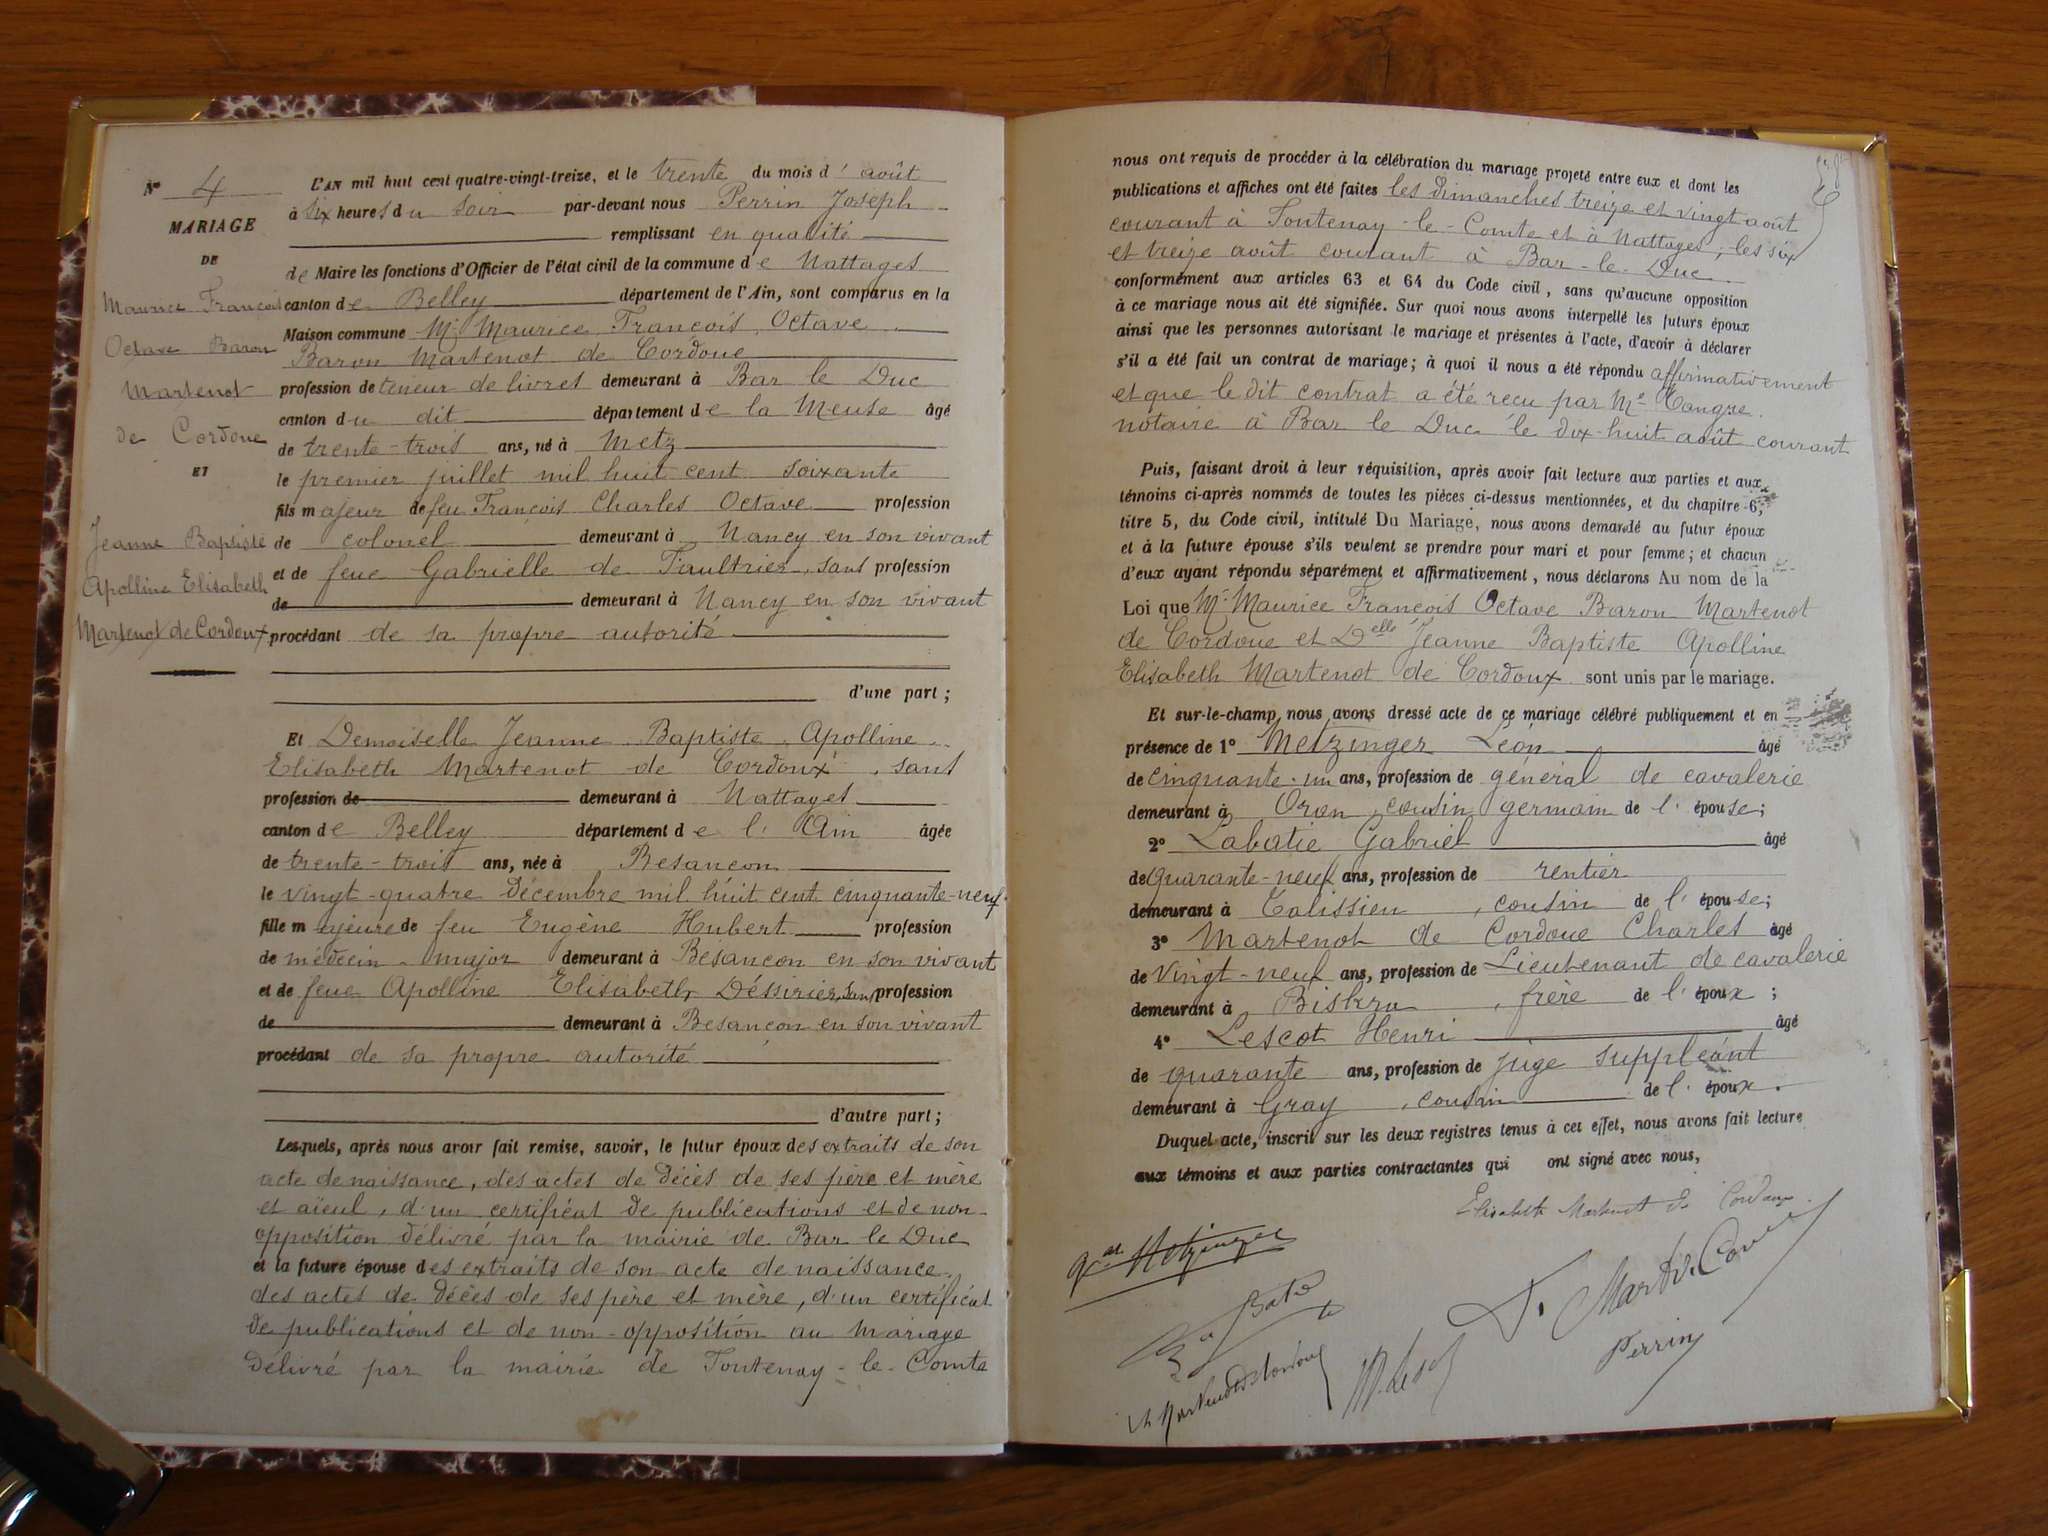 N° 4
MARIAGE
DE
Maurice François
Octave Baron
Martenot
de Cordoue
ET
Jeanne Baptiste
Apolline Elisabeth
Martenot de Cordoux
L'AN mil huit cent quatre-vingt-treize, et le trente du mois d' août
à six heures du soir par-devant nous Perrin Joseph
remplissant en qualité
de Maire les fonctions d'Officier de l'état civil de la commune de Nattages
canton de Belley département de l'Ain, sont comparus en la
Maison commune Mr Maurice François Octave
Baron Martenot de Cordoue
profession de teneur de livres demeurant à Bar le Duc
canton du dit département de la Meuse âgé
de trente-trois ans, né à Metz
le premier juillet mil huit cent soixante
fils majeur de feu François Charles Octave profession
de colonel demeurant à Nancy en son vivant
et de feue Gabrielle de Faultrier, sans profession
de demeurant à Nancy en son vivant
procédant de sa propre autorité
d'une part ;
Et Demoiselle Jeanne Baptiste Apolline
Elisabeth Martenot de Cordoux, sans
profession de demeurant à Nattages
canton de Belley département de l'Ain âgée
de trente-trois ans, née à Besançon
le vingt-quatre décembre mil huit cent cinquante-neuf
fille majeure de feu Eugène Hubert profession
de médecin-major demeurant à Besançon en son vivant
et de feue Apolline Elisabeth Déssirier, sans profession
de demeurant à Besançon en son vivant
procédant de sa propre autorité
d'autre part ;
Lesquels, après nous avoir fait remise, savoir, le futur époux des extraits de son
acte de naissance, des actes de décès de ses père et mère
et aïeul, d'un certificat de publications et de non-
opposition délivré par la mairie de Bar le Duc
et la future épouse des extraits de son acte de naissance,
des actes de décès de ses père et mère, d'un certificat
de publications et de non-opposition au mariage
délivré par la mairie de Fontenay-le-Comte
nous ont requis de procéder à la célébration du mariage projeté entre eux et dont les
publications et affiches ont été faites les dimanches treize et vingt août
courant à Fontenay-le-Comte et à Nattages, les six
et treize août courant à Bar-le-Duc
conformément aux articles 63 et 64 du Code civil, sans qu'aucune opposition
à ce mariage nous ait été signifiée. Sur quoi nous avons interpellé les futurs époux
ainsi que les personnes autorisant le mariage et présentes à l'acte, d'avoir à déclarer
s'il a été fait un contrat de mariage ; à quoi il nous a été répondu affirmativement
et que le dit contrat a été reçu par Me
notaire à Bar le Duc le dix-huit août courant
Puis, faisant droit à leur réquisition, après avoir fait lecture aux parties et aux
témoins ci-après nommés de toutes les pièces ci-dessus mentionnées, et du chapitre 6,
titre 5, du Code civil, intitulé Du Mariage, nous avons demandé au futur époux
et à la future épouse s'ils veulent se prendre pour mari et pour femme ; et chacun
d'eux ayant répondu séparément et affirmativement, nous déclarons Au nom de la
Loi que Mr Maurice François Octave Baron Martenot
de Cordoue et Delle Jeanne Baptiste Apolline
Elisabeth Martenot de Cordoux sont unis par le mariage.
Et sur-le-champ nous avons dressé acte de ce mariage célébré publiquement et en
présence de 1° Metzinger Léon âgé
de cinquante-un ans, profession de général de cavalerie
demeurant à Oran, cousin germain de l'épouse ;
2° Labatie Gabriel âgé
de quarante-neuf ans, profession de rentier
demeurant à Talissieu, cousin de l'épouse ;
3° Martenot de Cordoue Charles âgé
de vingt-neuf ans, profession de Lieutenant de cavalerie
demeurant à Biskra, frère de l'époux ;
4° Lescot Henri âgé
de quarante ans, profession de juge suppléant
demeurant à Gray, cousin de l'époux.
Duquel acte, inscrit sur les deux registres tenus à cet effet, nous avons fait lecture
aux témoins et aux parties contractantes qui ont signé avec nous,
Elisabeth Martenot de Cordoux
Gal Metzinger
Perrin